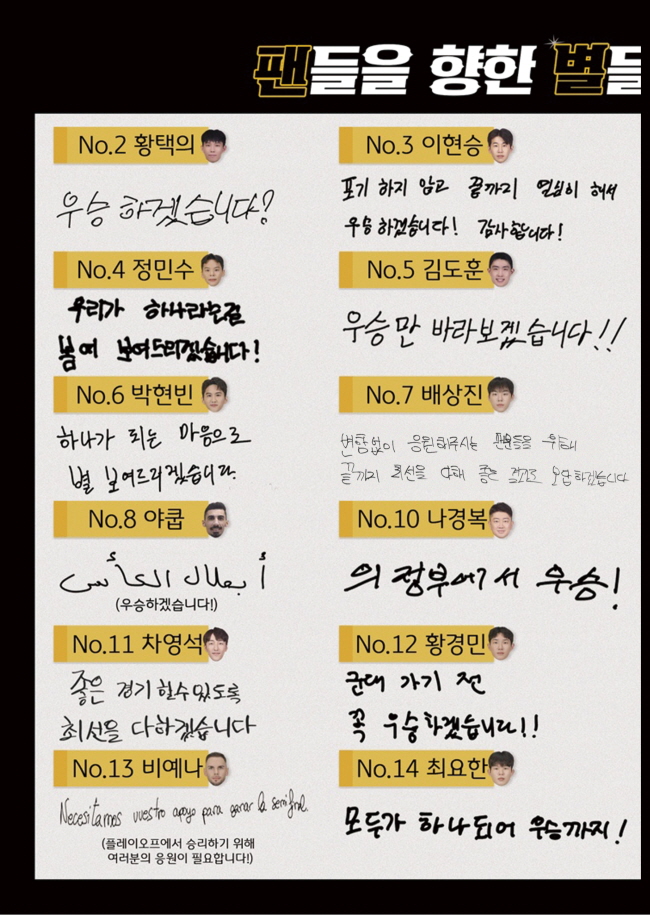 팬들을 향한 별들
No.2 황택의
우승 하겠습니다?
No.3 이현승
포기 하지 않고 끝까지 열심히 해서
우승 하겠습니다! 감사합니다!
No.4 정민수
우리가 하나라는걸
봄에 보여드리겠습니다!
No.5 김도훈
우승만 바라보겠습니다!!
No.6 박현빈
하나가 되는 마음으로
별 보여드리겠습니다.
No.7 배상진
변함없이 응원해주시는 팬분들을 위해
끝까지 최선을 다해 좋은 결과로 보답하겠습니다
No.8 야쿱
أبطال الكأس
(우승하겠습니다!)
No.10 나경복
의정부에서 우승!
No.11 차영석
좋은 경기 할수있도록
최선을 다하겠습니다
No.12 황경민
군대 가기 전
꼭 우승하겠습니다!!
No.13 비예나
Necesitamos vuestro apoyo para ganar la semifinal.
(플레이오프에서 승리하기 위해
여러분의 응원이 필요합니다!)
No.14 최요한
모두가 하나되어 우승까지!